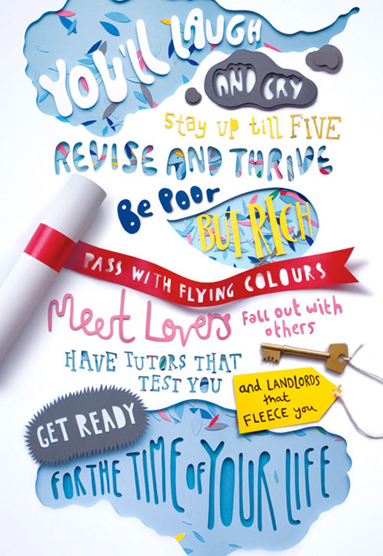 YOU'LL LAUGH
AND CRY
Stay up till FIVE
REVISE AND THRIVE
Be Poor
BUT RICH
PASS WITH FLYING COLOURS
Meet Lovers
Fall out with
others
HAVE TUTORS THAT
TEST YOU
and LANDLORDS
that
FLEECE you
GET READY
FOR THE TIME OF YOUR LIFE